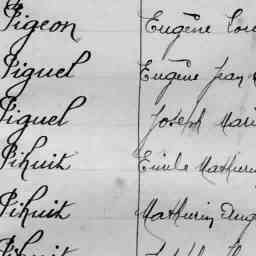 Pigeon Eugène Lou
Piguel Eugène Jean
Piguel Joseph Mari
Pihuit Emile Mathurin
Pihuit Mathurin Aug
Pihuit